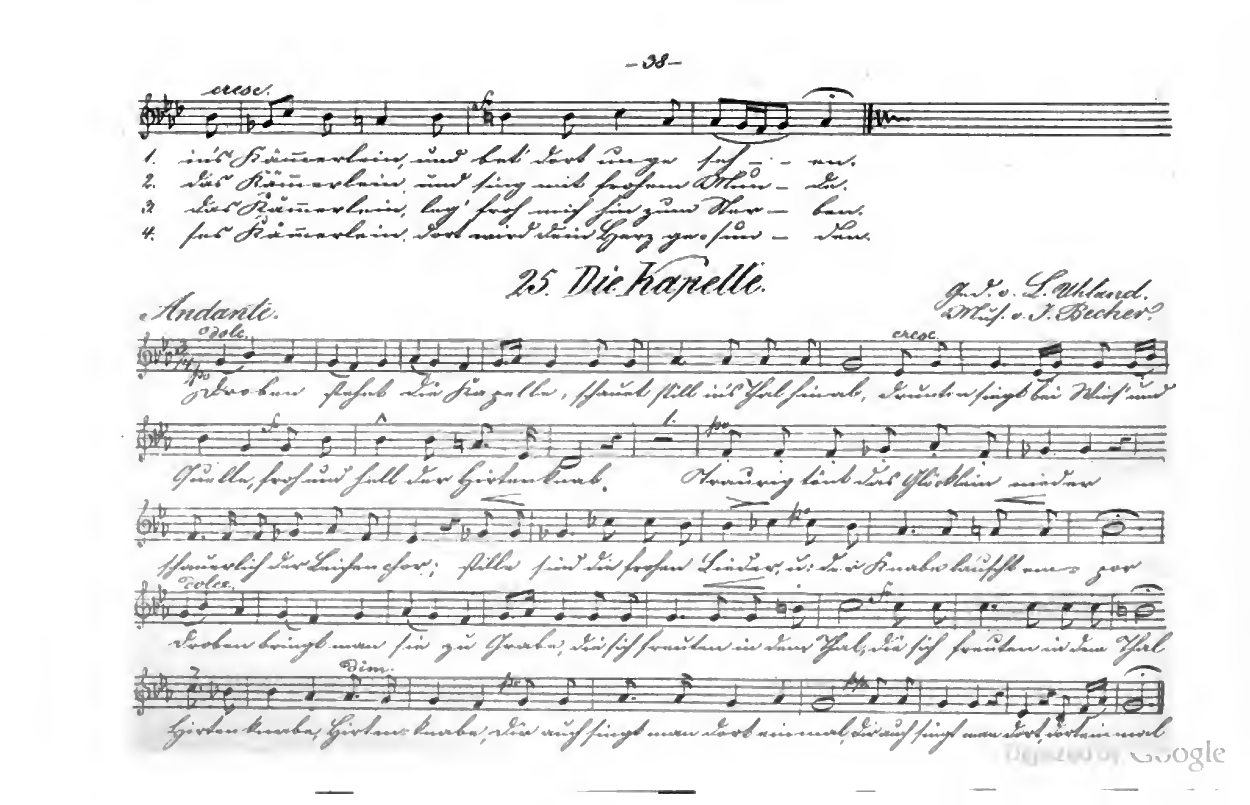 -38-
cresc.
1. in's Kämmerlein, und bet' dort unge seh - - en.
2. das Kämmerlein, und sing mit frohem Mun - de.
3. das Kämmerlein, leg' froh mich hin zum Ster - ben.
4. ses Kämmerlein, dort wird dein Herz ge=sun - den.
25. Die Kapelle.
Ged. v. L. Uhland.
Andante. Mus. v. J. Becher.
dolc. cresc.
Droben stehet die Kapelle, schauet still in's Thal hinab, drunten singt bei Wies' und
Quelle, froh und hell der Hirtenknab. Traurig tönt das Glöcklein nieder
schauerlich der Leichenchor; stille sind die frohen Lieder, u: der Knabe lauscht em= por
dolce.
Droben bringt man sie zu Grabe, die sich freuten in dem Thal, die sich freuten in dem Thal
dim.
Hirtenknabe, Hirten=knabe, dir auch singt man dort einmal, dir auch singt man dort, dort einmal
Digitized by Google